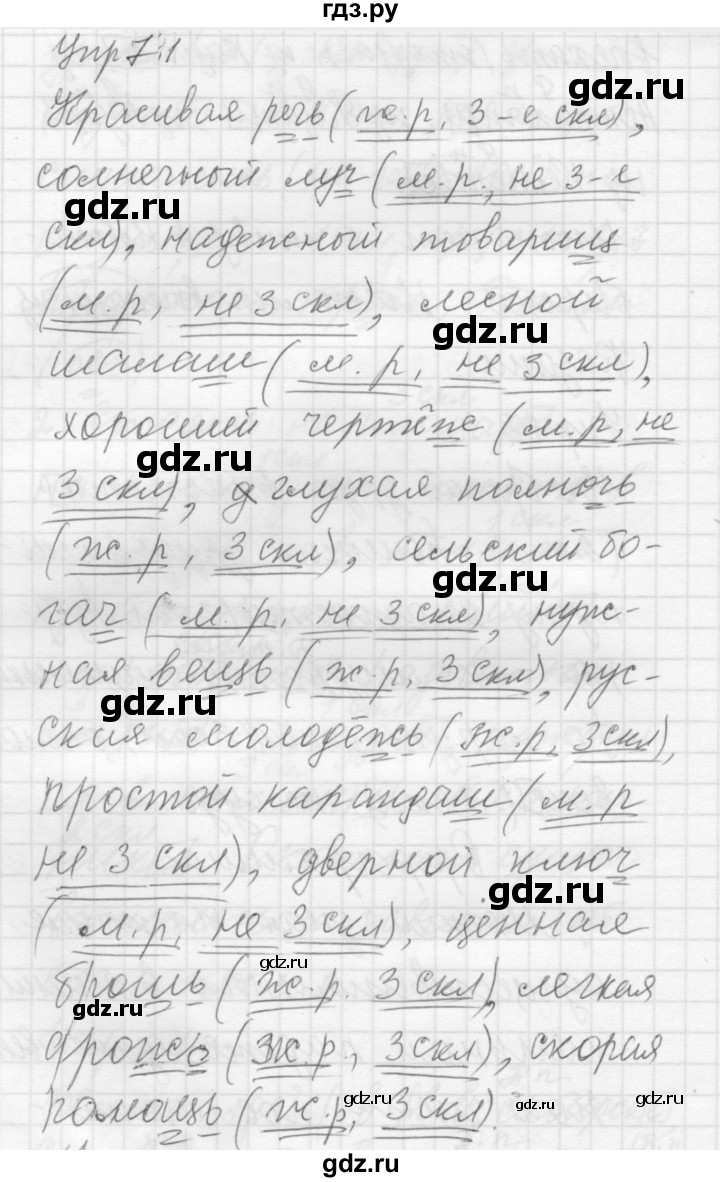 гдз.ру
Упр 731
Красивая речь (ж.р, 3-е скл),
солнечный луч (м.р., не 3-е
gdz.ru
скл), надежный товарищ
(м.р, не 3 скл), лесной
gdz.ru
шалаш (м.р, не 3 скл),
хороший чертёж (м.р, не
gdz.ru
3 скл), глухая полночь
(ж.р, 3 скл), сельский бо-
gdz.ru
гач (м.р, не 3 скл), нуж-
ная вещь (ж.р, 3 скл), рус-
gdz.ru
ская молодёжь (ж.р, 3 скл),
простой карандаш (м.р
не 3 скл), дверной ключ
gdz.ru
(м.р, не 3 скл), ценная
gdz.ru
брошь (ж.р. 3 скл), легкая
gdz.ru
дрожь (ж.р, 3 скл), скорая
gdz.ru
gdz.ru
помощь (ж.р, 3 скл).
gdz.ru